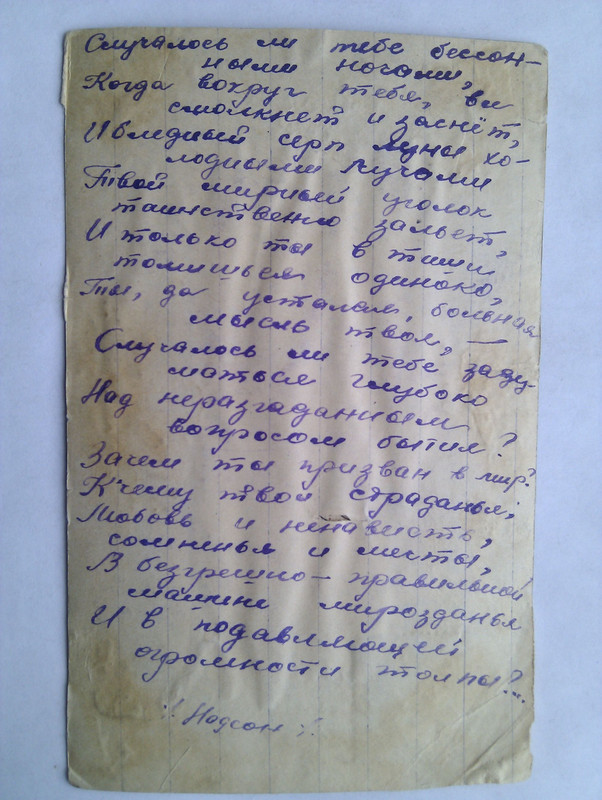 Случалось ли тебе бессон-
ными ночами,
Когда вокруг тебя, все
смолкнет и заснёт,
И бледный серп луны хо-
лодными лучами
Твой мирный уголок
таинственно зальет,
И только ты в тиши
томишься одиноко,
Ты, да усталая, больная
мысль твоя, —
Случалось ли тебе заду-
маться глубоко
Над неразгаданным
вопросом бытия?
Зачем ты призван в мир?
К чему твои страданья,
Любовь и ненависть,
сомненья и мечты,
В безгрешно-правильной
машине мирозданья
И в подавляющей
огромности толпы?...
/ Надсон /.